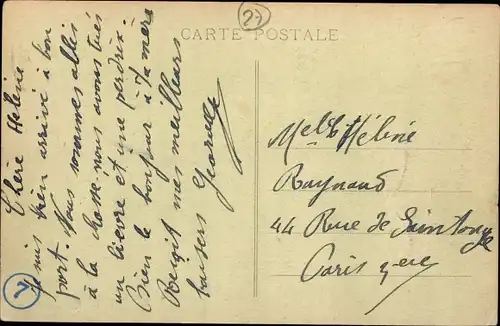 27
CARTE POSTALE
Chère Hélène
Je suis bien arrivé à bon
port. Nous sommes allés
à la chasse nous avons tués
un lièvre et une perdrix.
Bien le bonjour à ta mère
Reçoit mes meilleurs
baisers
Melle Hélène
Raynaud
44 Rue de Saintonge
Paris 3ème